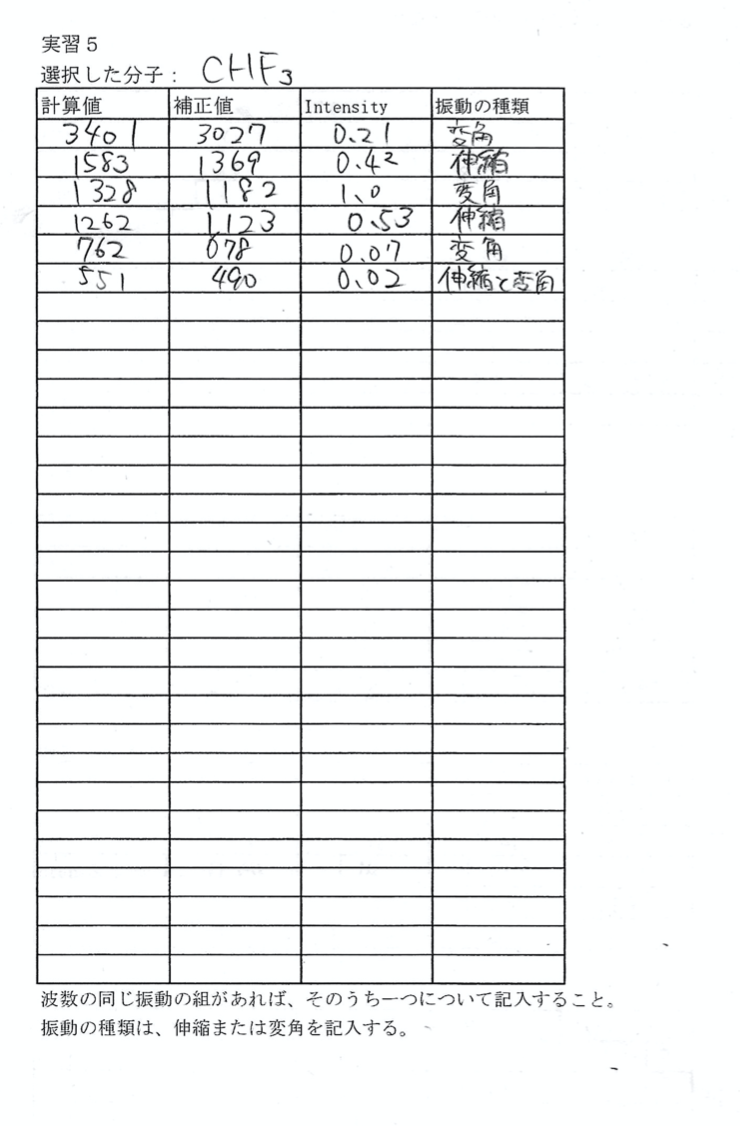 実習５
選択した分子： CHF3
計算値 補正値 Intensity 振動の種類
3401 3027 0.21 変角
1583 1369 0.42 伸縮
1328 1182 1.0 変角
1262 1123 0.53 伸縮
762 678 0.07 変角
551 490 0.02 伸縮と変角
波数の同じ振動の組があれば、そのうち一つについて記入すること。
振動の種類は、伸縮または変角を記入する。